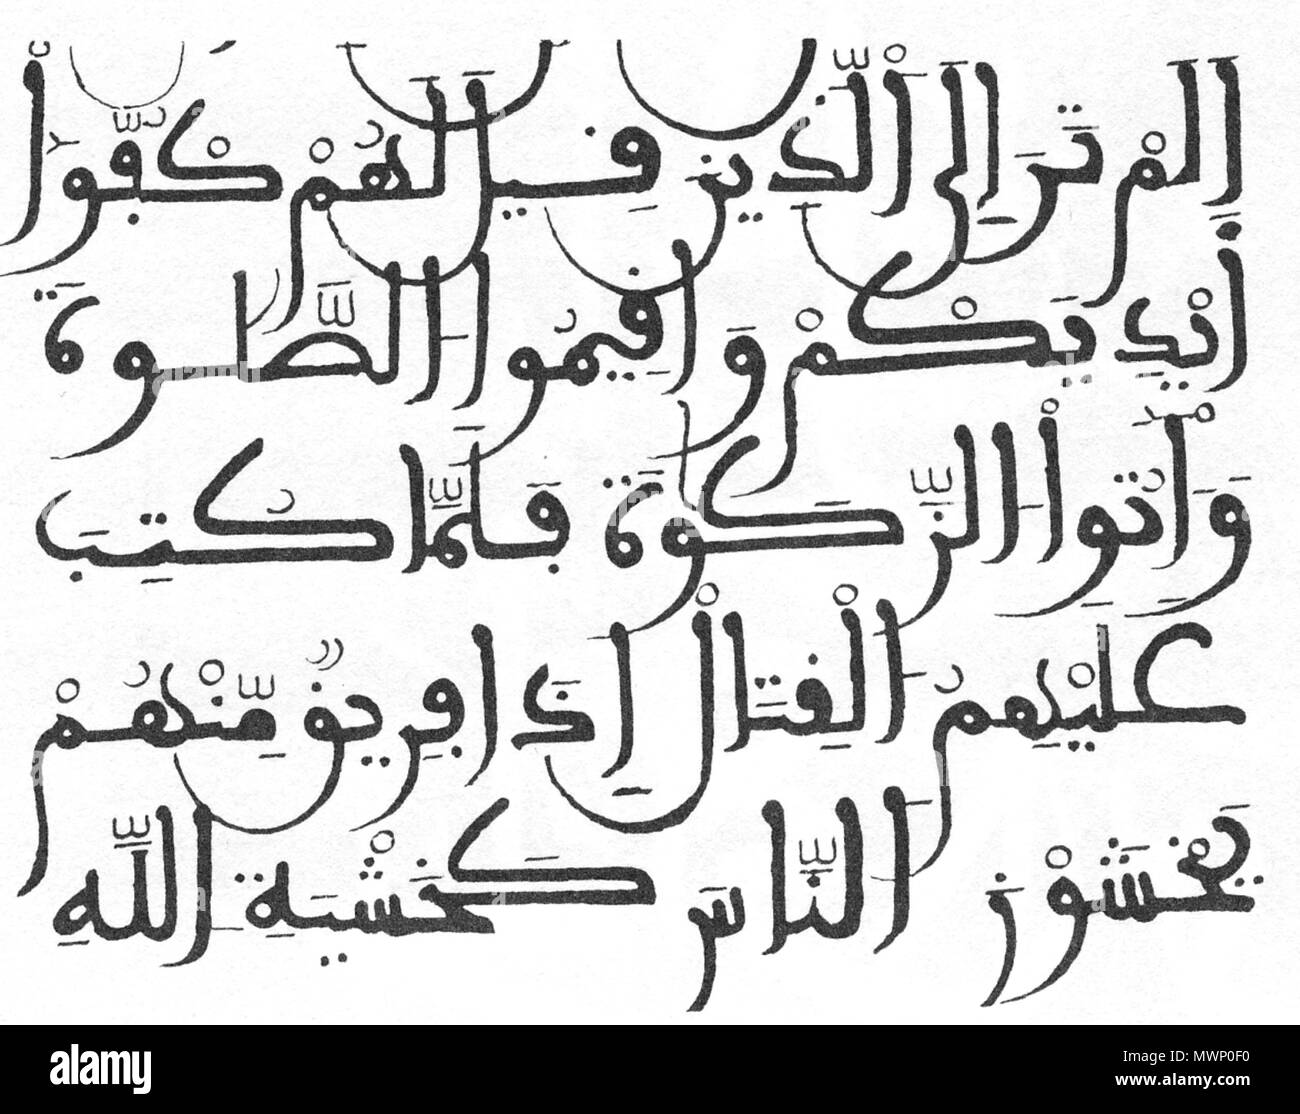 اَلَمْ تَرَ إِلَى أَلذِينَ قِيلَ لَهُمْ كُفُّوا أَ
أَيْدِيَكُمْ وَأَقِيمُوا الصَّلَوةَ
وَءَاتُوا الزَّكَوةَ فَلَمَّا كُتِبَ
عَلَيْهِمُ الْقِتَالُ إِذَا فَرِيقٌ مِّنْهُمْ
يَخْشَوْنَ النَّاسَ كَخَشْيَةِ اللَّهِ
alamy
Image ID: MWP0F0
www.alamy.com